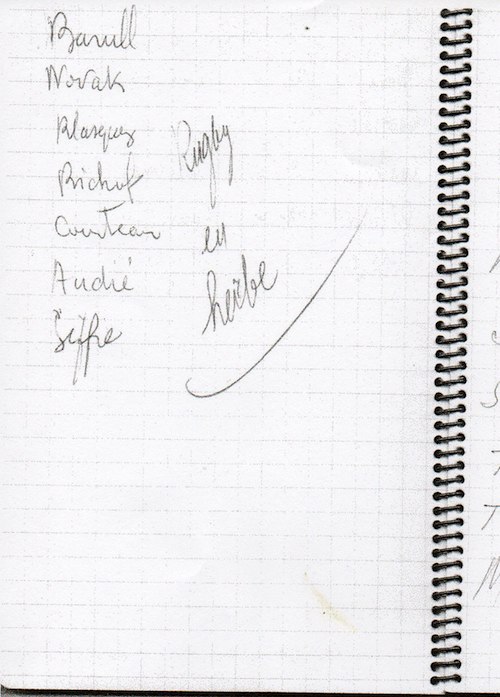 Barull
Novak
Blasquez
Bichof
Courteau
Audié
Seffre
Rugby
en
herbe